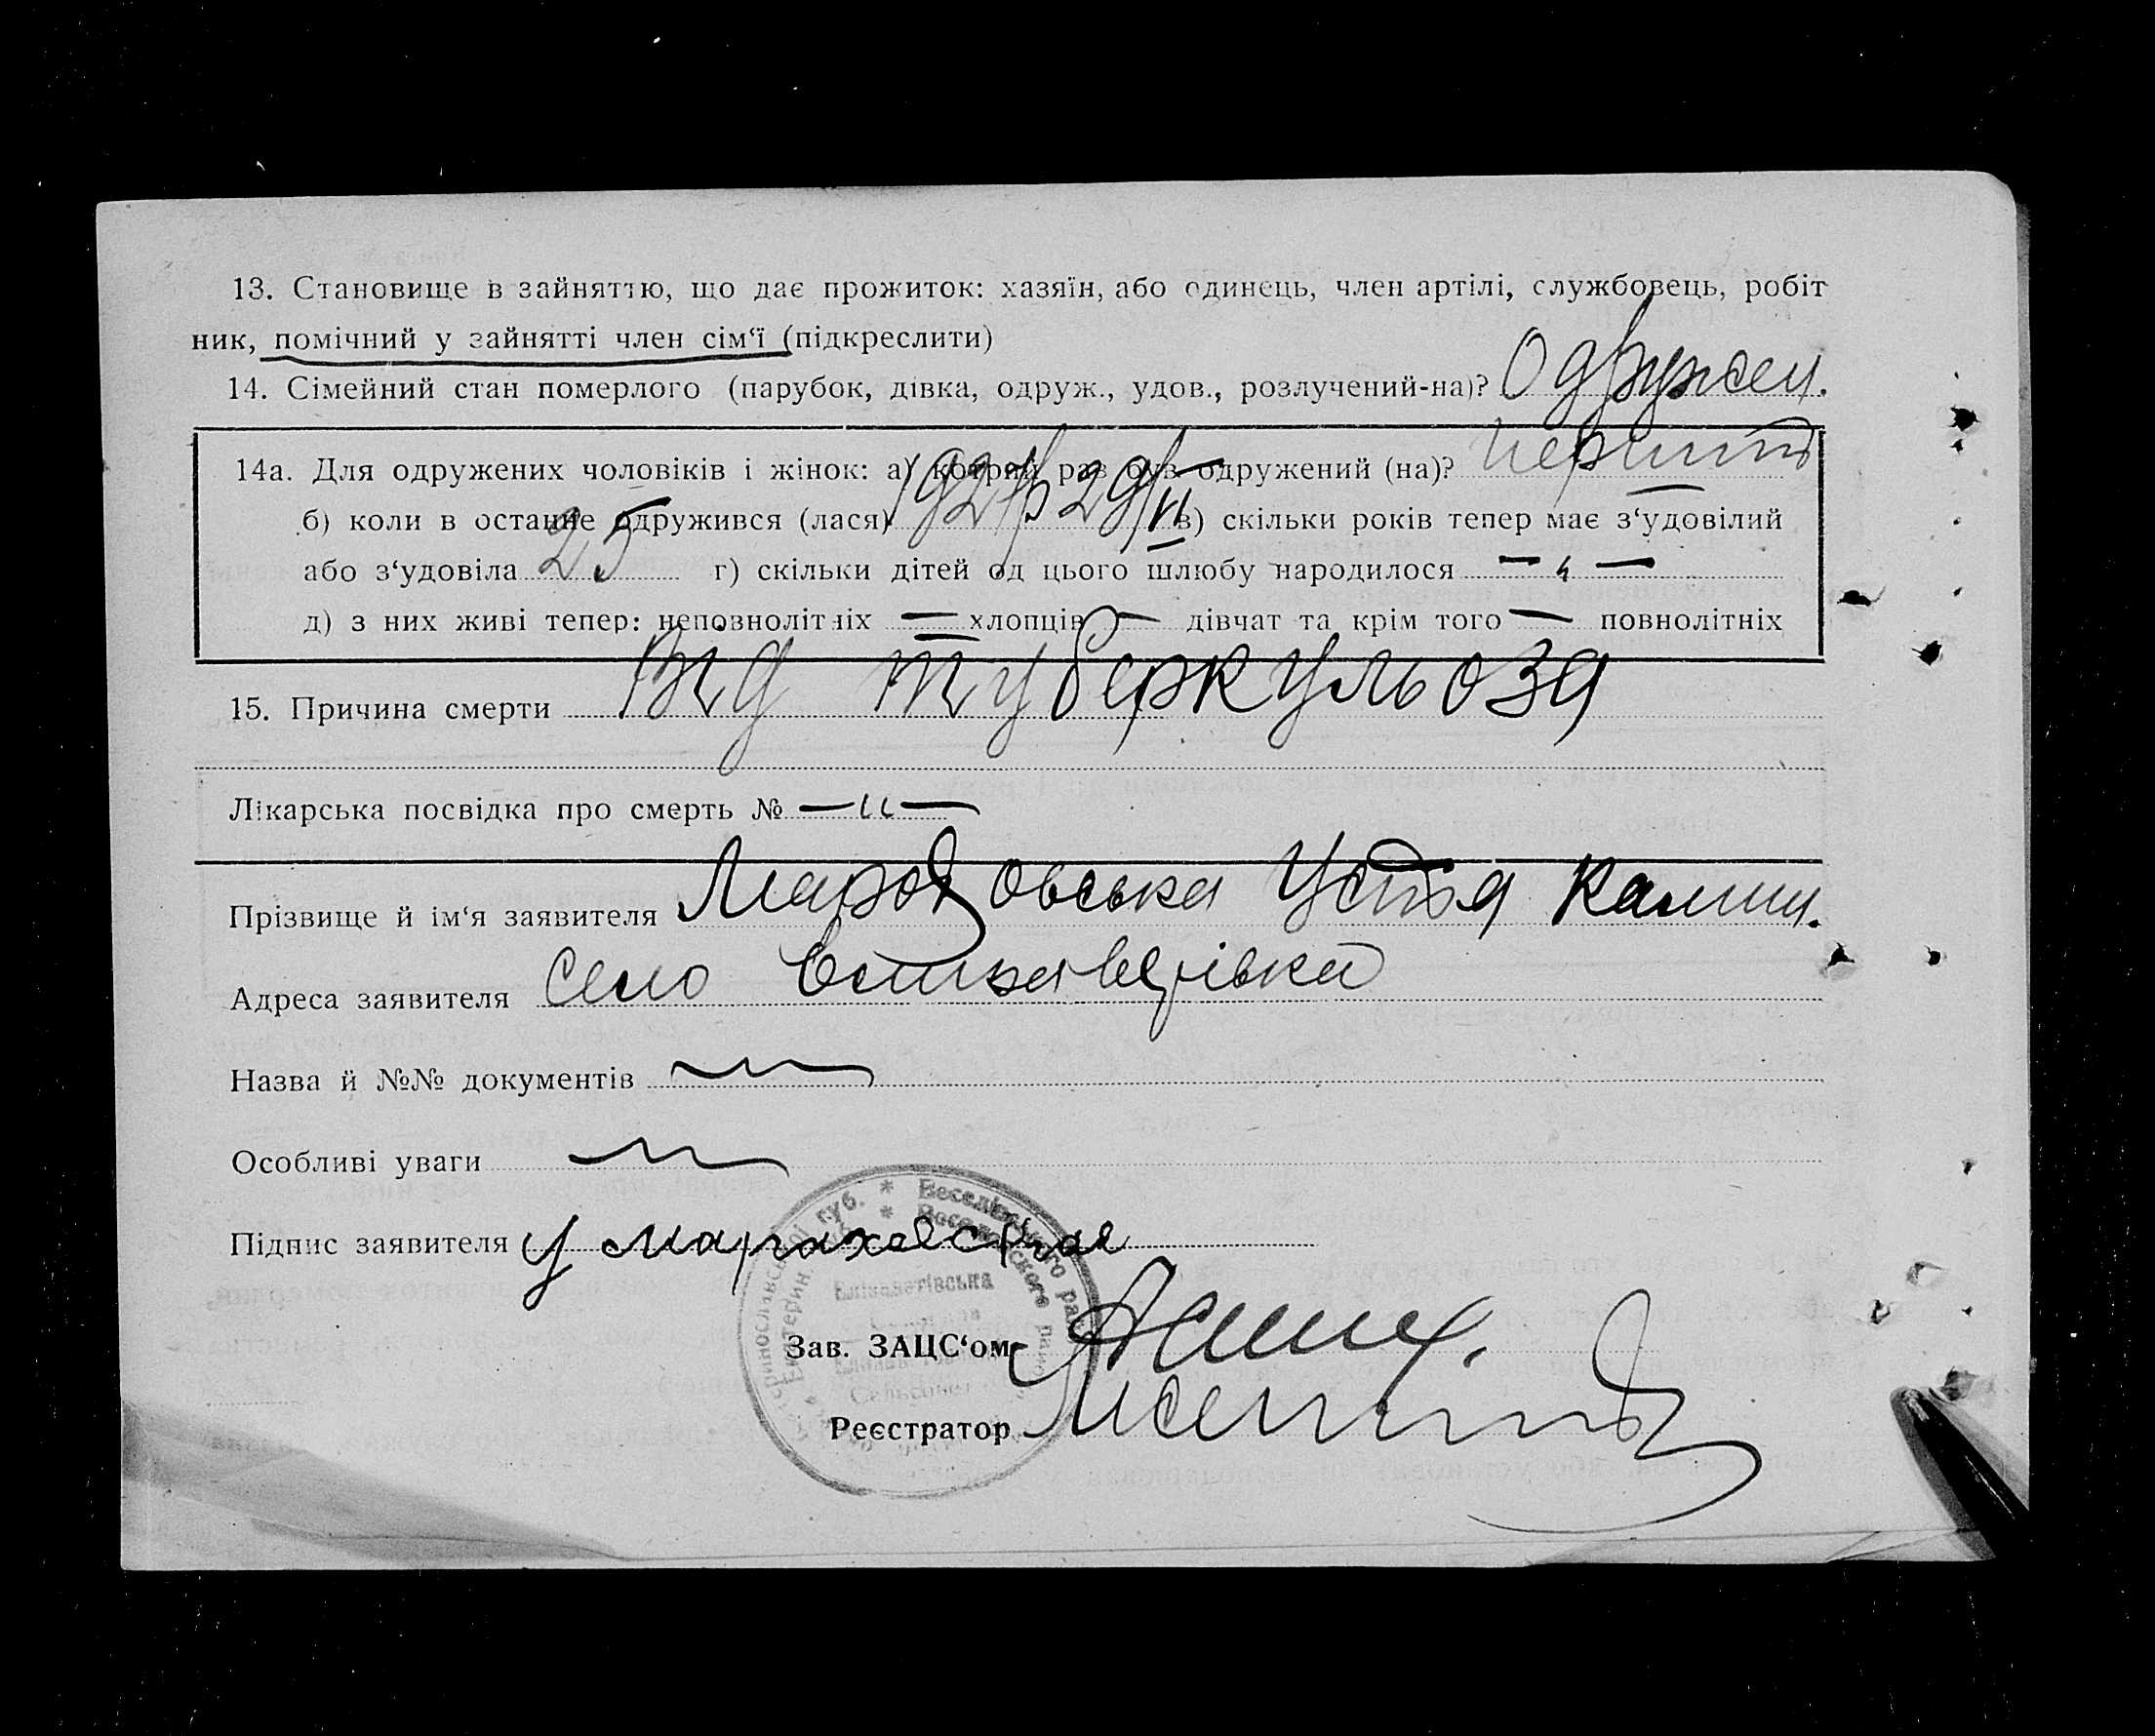 13. Становище в зайняттю, що дає прожиток: хазяїн, або одинець, член артілі, службовець, робіт
ник, помічний у зайнятті член сім‘ї (підкреслити)
14. Сімейний стан померлого (парубок, дівка, одруж., удов., розлучений-на)? Одружен.
14а. Для одружених чоловіків і жінок: а) котрий раз був одружений (на)? перший
б) коли в останнє одружився (лася) 29/VI в) скільки років тепер має з‘удовілий
або з‘удовіла 25 г) скільки дітей од цього шлюбу народилося — „ —
д) з них живі тепер: неповнолітніх — хлопців — дівчат та крім того — повнолітніх
15. Причина смерти Від туберкульоза
Лікарська посвідка про смерть № — „ —
Прізвище й ім‘я заявителя Устя
Адреса заявителя село Єлизаветівка
Назва й №№ документів
Особливі уваги
Підпис заявителя
Єлізаветівська
Зав. ЗАЦС‘ом
Реєстратор